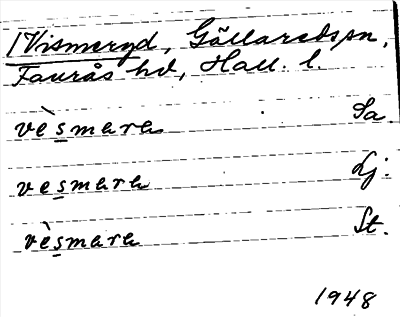 Vismeryd, Gällaredssn,
Faurås hd, Hall. l.
vèsmara Sa.
vesmara Lj.
vèsmara St.
1948